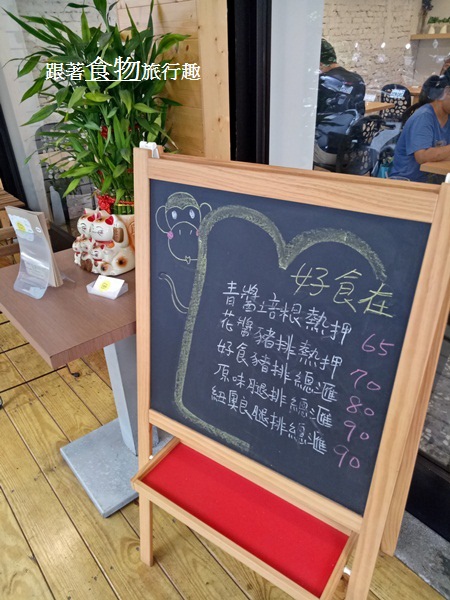 跟著食物旅行趣
好食在
青醬培根熱押 65
花醬豬排熱押 70
好食豬排總滙 80
原味腿排總滙 90
紐奧良腿排總滙 90